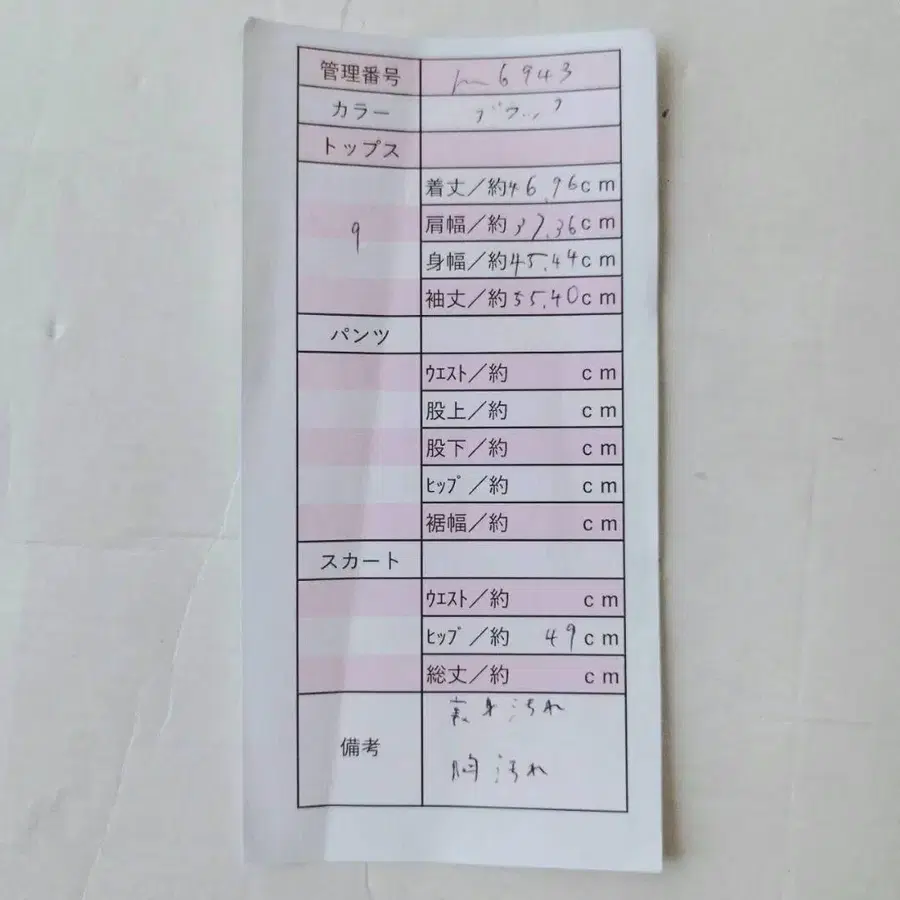 管理番号 m6943
カラー ブラック
トップス
9
着丈/約46.96cm
肩幅/約37.36cm
身幅/約45.44cm
袖丈/約55.40cm
パンツ
ｳｴｽﾄ/約 cm
股上/約 cm
股下/約 cm
ﾋｯﾌﾟ/約 cm
裾幅/約 cm
スカート
ｳｴｽﾄ/約 cm
ﾋｯﾌﾟ/約 49cm
総丈/約 cm
備考
裏身汚れ
胸汚れ